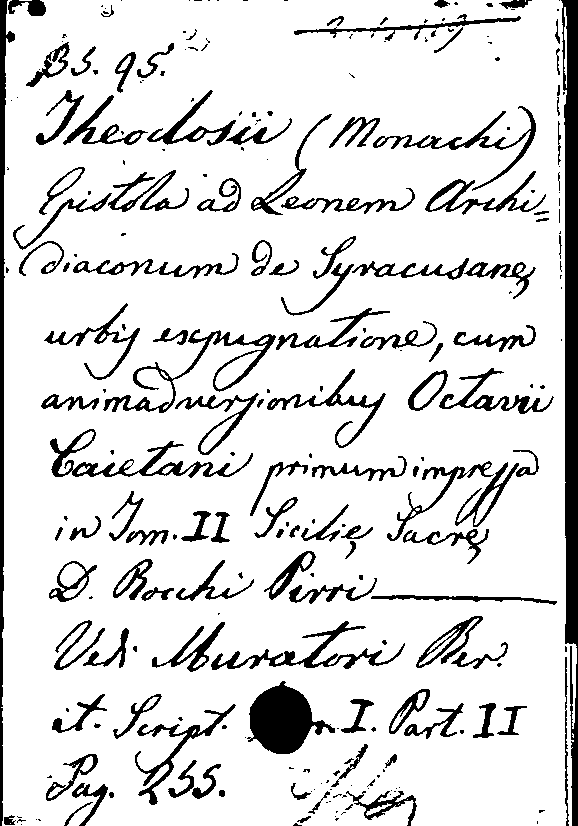 BS. 95.
Theodosii (Monachi)
Epistola ad Leonem Archi=
diaconum de Syracusanę
urbis expugnatione, cum
animadversionibus Octavii
Caietani primum impressa
in Tom. II Sicilię Sacrę
D. Rocchi Pirri
Vedi Muratori Rer.
it. Script. m I. Part. II
Pag. 255.